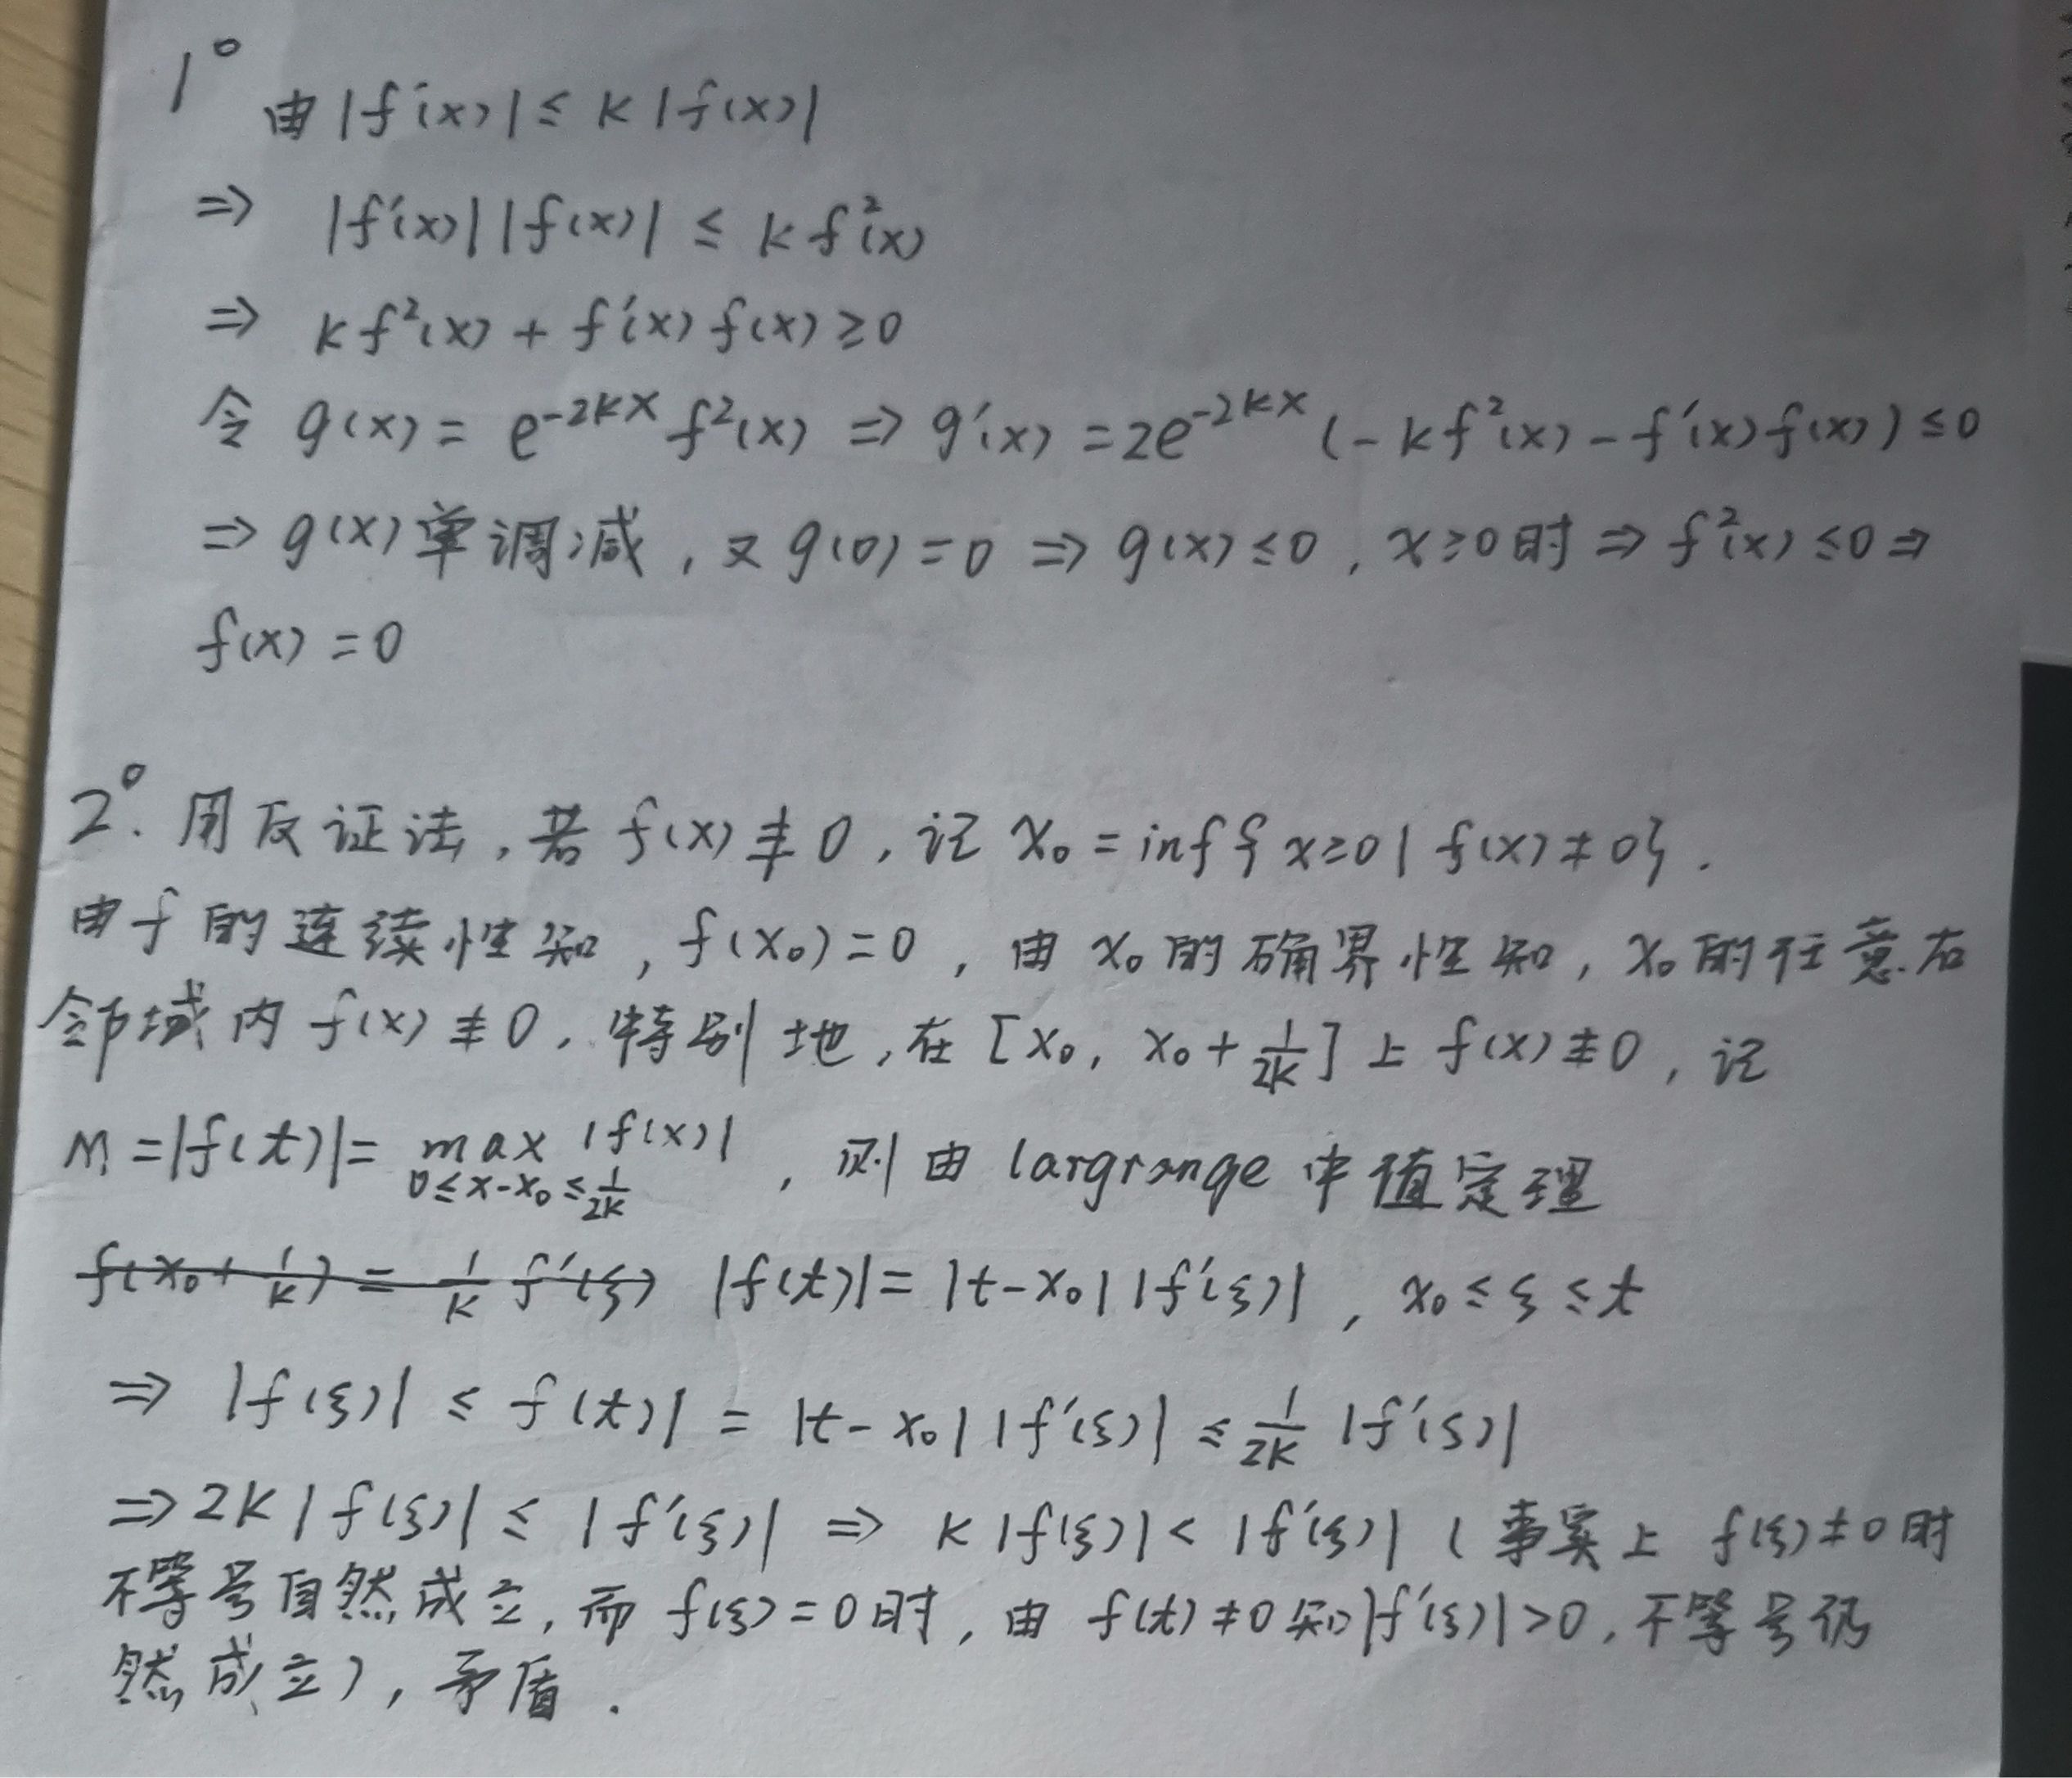 1° 由|f'(x)| ≤ k|f(x)|
⇒ |f'(x)||f(x)| ≤ kf²(x)
⇒ kf²(x) + f'(x)f(x) ≥ 0
令 g(x) = e^{-2kx} f²(x) ⇒ g'(x) = 2e^{-2kx} (-kf²(x) - f'(x)f(x)) ≤ 0
⇒ g(x)单调减, 又 g(0) = 0 ⇒ g(x) ≤ 0, x≥0时 ⇒ f²(x) ≤ 0 ⇒
f(x) = 0
2°. 用反证法, 若 f(x) ≢ 0, 记 x₀ = inf{x≥0 | f(x) ≠ 0}.
由f的连续性知, f(x₀) = 0, 由 x₀ 的确界性知, x₀ 的任意右
邻域内 f(x) ≢ 0, 特别地, 在 [x₀, x₀ + 1/2k] 上 f(x) ≢ 0, 记
M = |f(t)| = max_{0≤x-x₀≤1/2k} |f(x)|, 则由 largrange 中值定理
f(x₀ + 1/k) = 1/k f'(ξ) |f(t)| = |t-x₀||f'(ξ)|, x₀ ≤ ξ ≤ t
⇒ |f(ξ)| ≤ f(t)| = |t-x₀||f'(ξ)| ≤ 1/2k |f'(ξ)|
⇒ 2k|f(ξ)| ≤ |f'(ξ)| ⇒ k|f(ξ)| < |f'(ξ)| (事实上 f(ξ) ≠ 0 时
不等号自然成立, 而 f(ξ) = 0 时, 由 f(t) ≠ 0 知|f'(ξ)| > 0, 不等号仍
然成立), 矛盾.